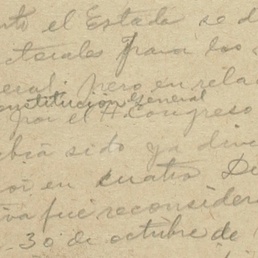 nto el Estado se d
ctorales para los
eral; pero en rela
onstitución General
por el H. Congreso
bía sido ya divi
or en cuatro Di
iva fué reconsider
30 de octubre de